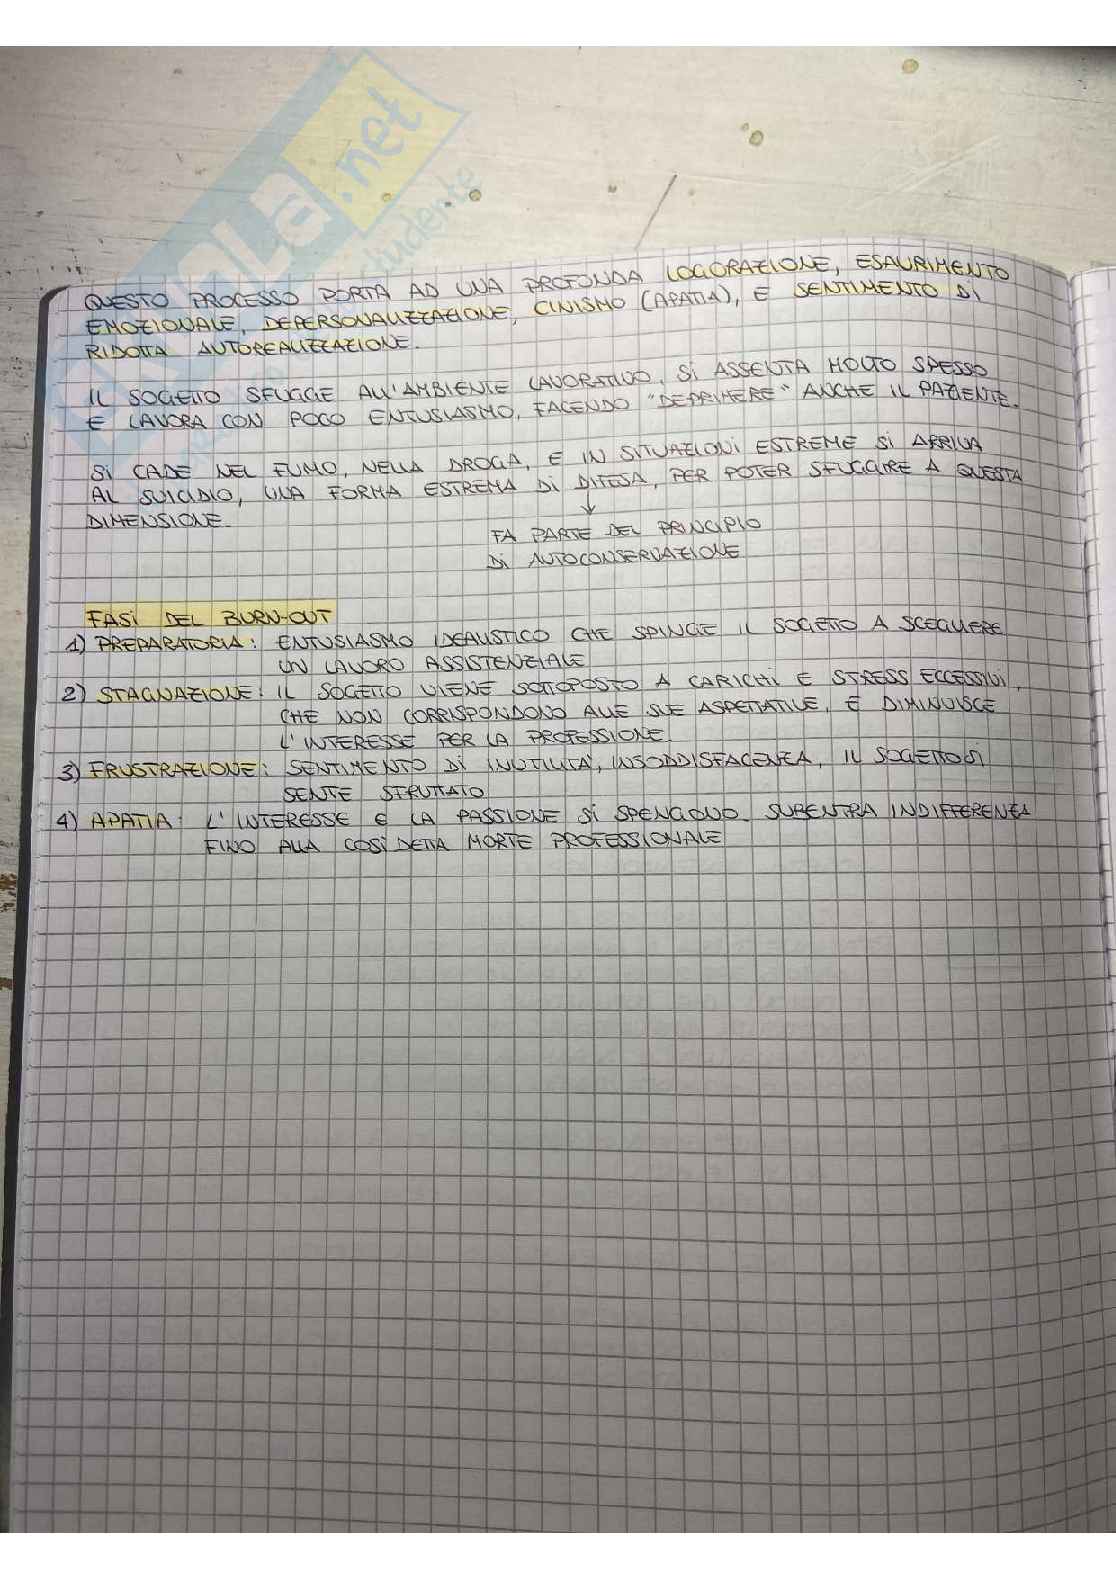 SKUOLA.net
QUESTO PROCESSO PORTA AD UNA PROFONDA LOGORAZIONE, ESAURIMENTO
EMOZIONALE, DEPERSONALIZZAZIONE, CINISMO (APATIA), E SENTIMENTO Di
RIDOTTA AUTOREALIZZAZIONE.
IL SOGETTO SFUGGE ALL'AMBIENTE LAVORATIVO, Si ASSENTA MOLTO SPESSO
E LAVORA CON POCO ENTUSIASMO, FACENDO "DEPRIMERE" ANCHE IL PAZIENTE.
Si CADE NEL FUMO, NELLA DROGA, E IN SITUAZIONi ESTREME Si ARRIVA
AL SUICIDIO, UNA FORMA ESTREMA Di DIFESA, PER POTER SFUGGIRE A QUESTA
DIMENSIONE.
↓
FA PARTE DEL PRINCIPIO
Di AUTOCONSERVAZIONE
FASi DEL BURN-OUT
1) PREPARATORIA: ENTUSIASMO IDEALISTICO CHE SPINGE IL SOGETTO A SCEGLIERE
UN LAVORO ASSISTENZIALE
2) STAGNAZIONE: IL SOGETTO VIENE SOTTOPOSTO A CARICHi E STRESS ECCESSIVi,
CHE NON CORRISPONDONO ALLE SUE ASPETTATIVE, E DIMINUISCE
L'INTERESSE PER LA PROFESSIONE
3) FRUSTRAZIONE: SENTIMENTO Di INUTILITA', INSODDISFACENZA, IL SOGETTO Si
SENTE SFRUTTATO
4) APATIA: L'INTERESSE E LA PASSIONE Si SPENGONO. SUBENTRA INDIFFERENZA
FINO ALLA COSì DETTA MORTE PROFESSIONALE